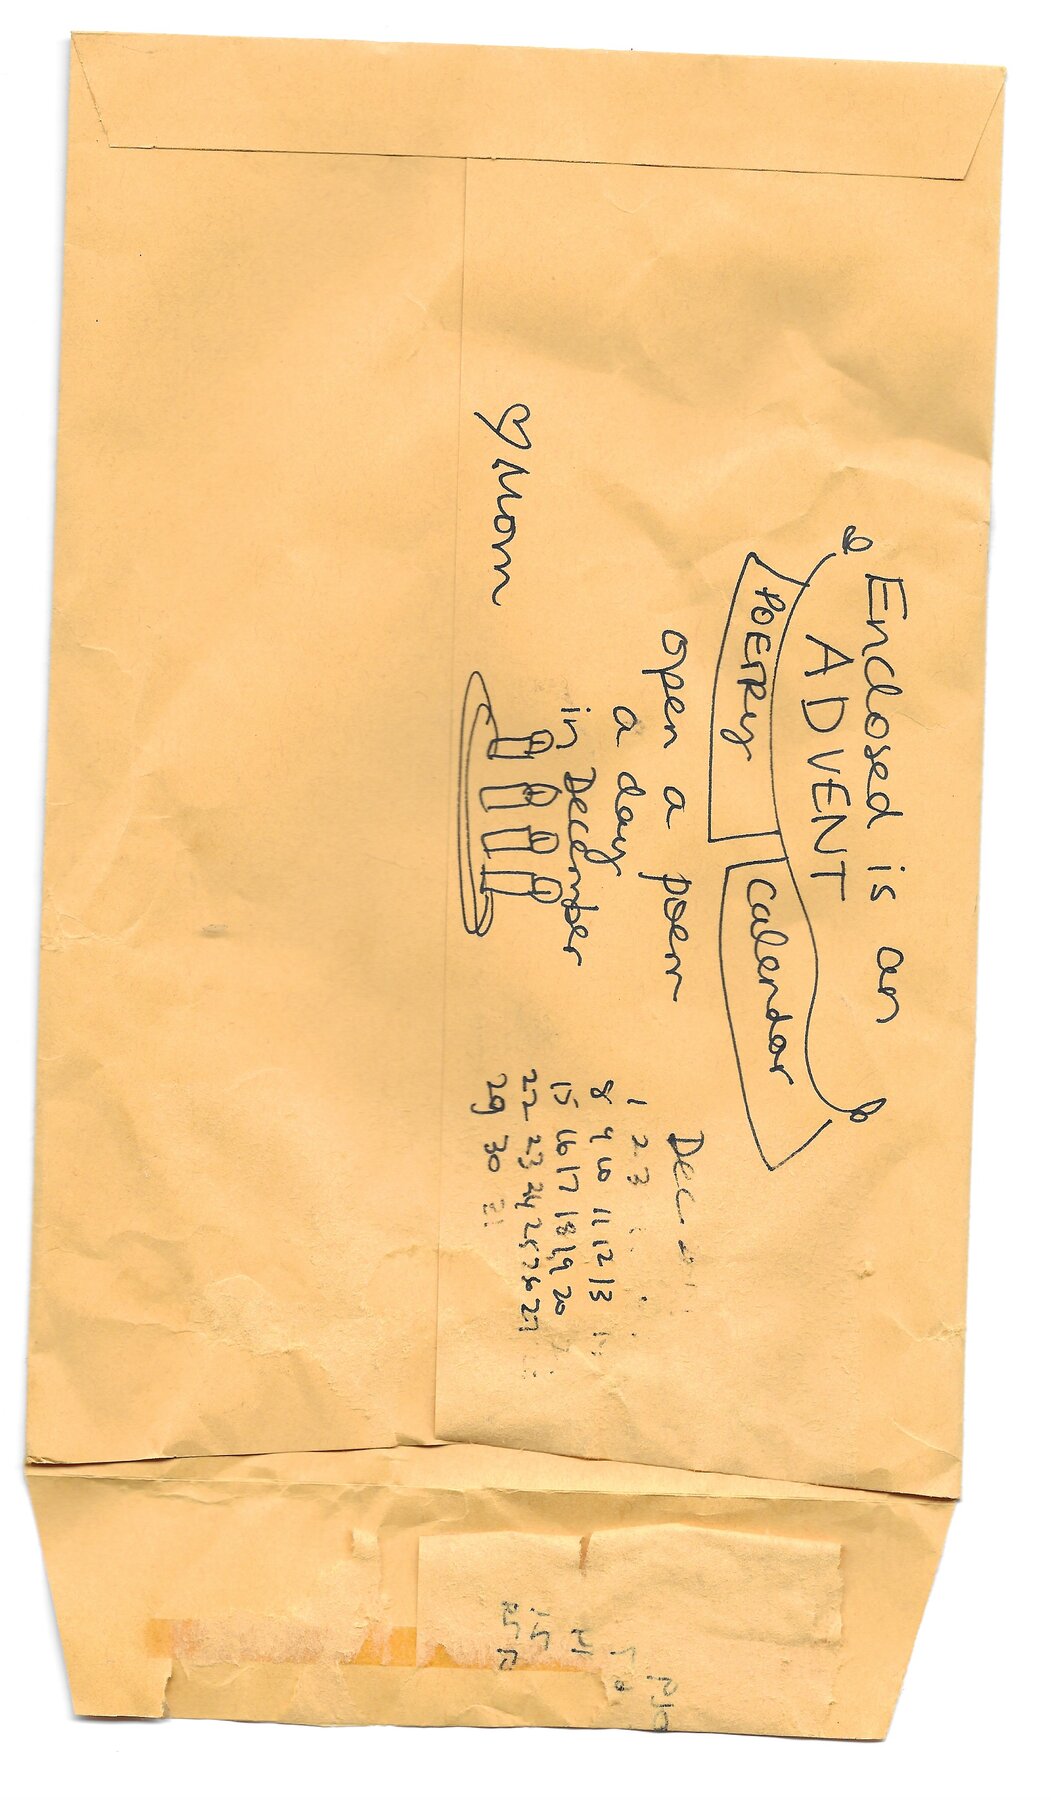 Enclosed is an
ADVENT
POETRy Calendar
open a poem
a day
in December
♡ Mom
Dec.
1 2 3
8 9 10 11 12 13
15 16 17 18 19 20
22 23 24 25 26 27
29 30 31